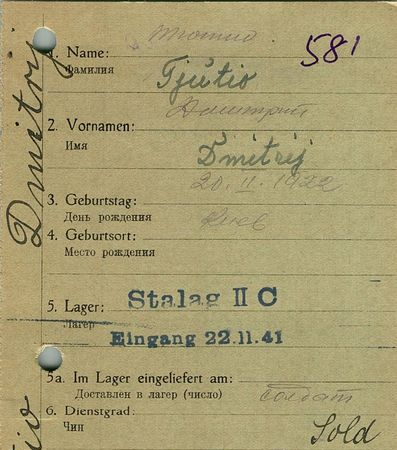 581
1. Name: Tjutio
Фамилия
Дмитрий
2. Vornamen: Dmitrij
Имя
20. II. 1922
3. Geburtstag:
День рождения
Киев
4. Geburtsort:
Место рождения
5. Lager: Stalag II C
Лагерь
Eingang 22.11.41
5a. Im Lager eingeliefert am:
Доставлен в лагер (число)
солдат
6. Dienstgrad: Sold
Чин
Dmitrij